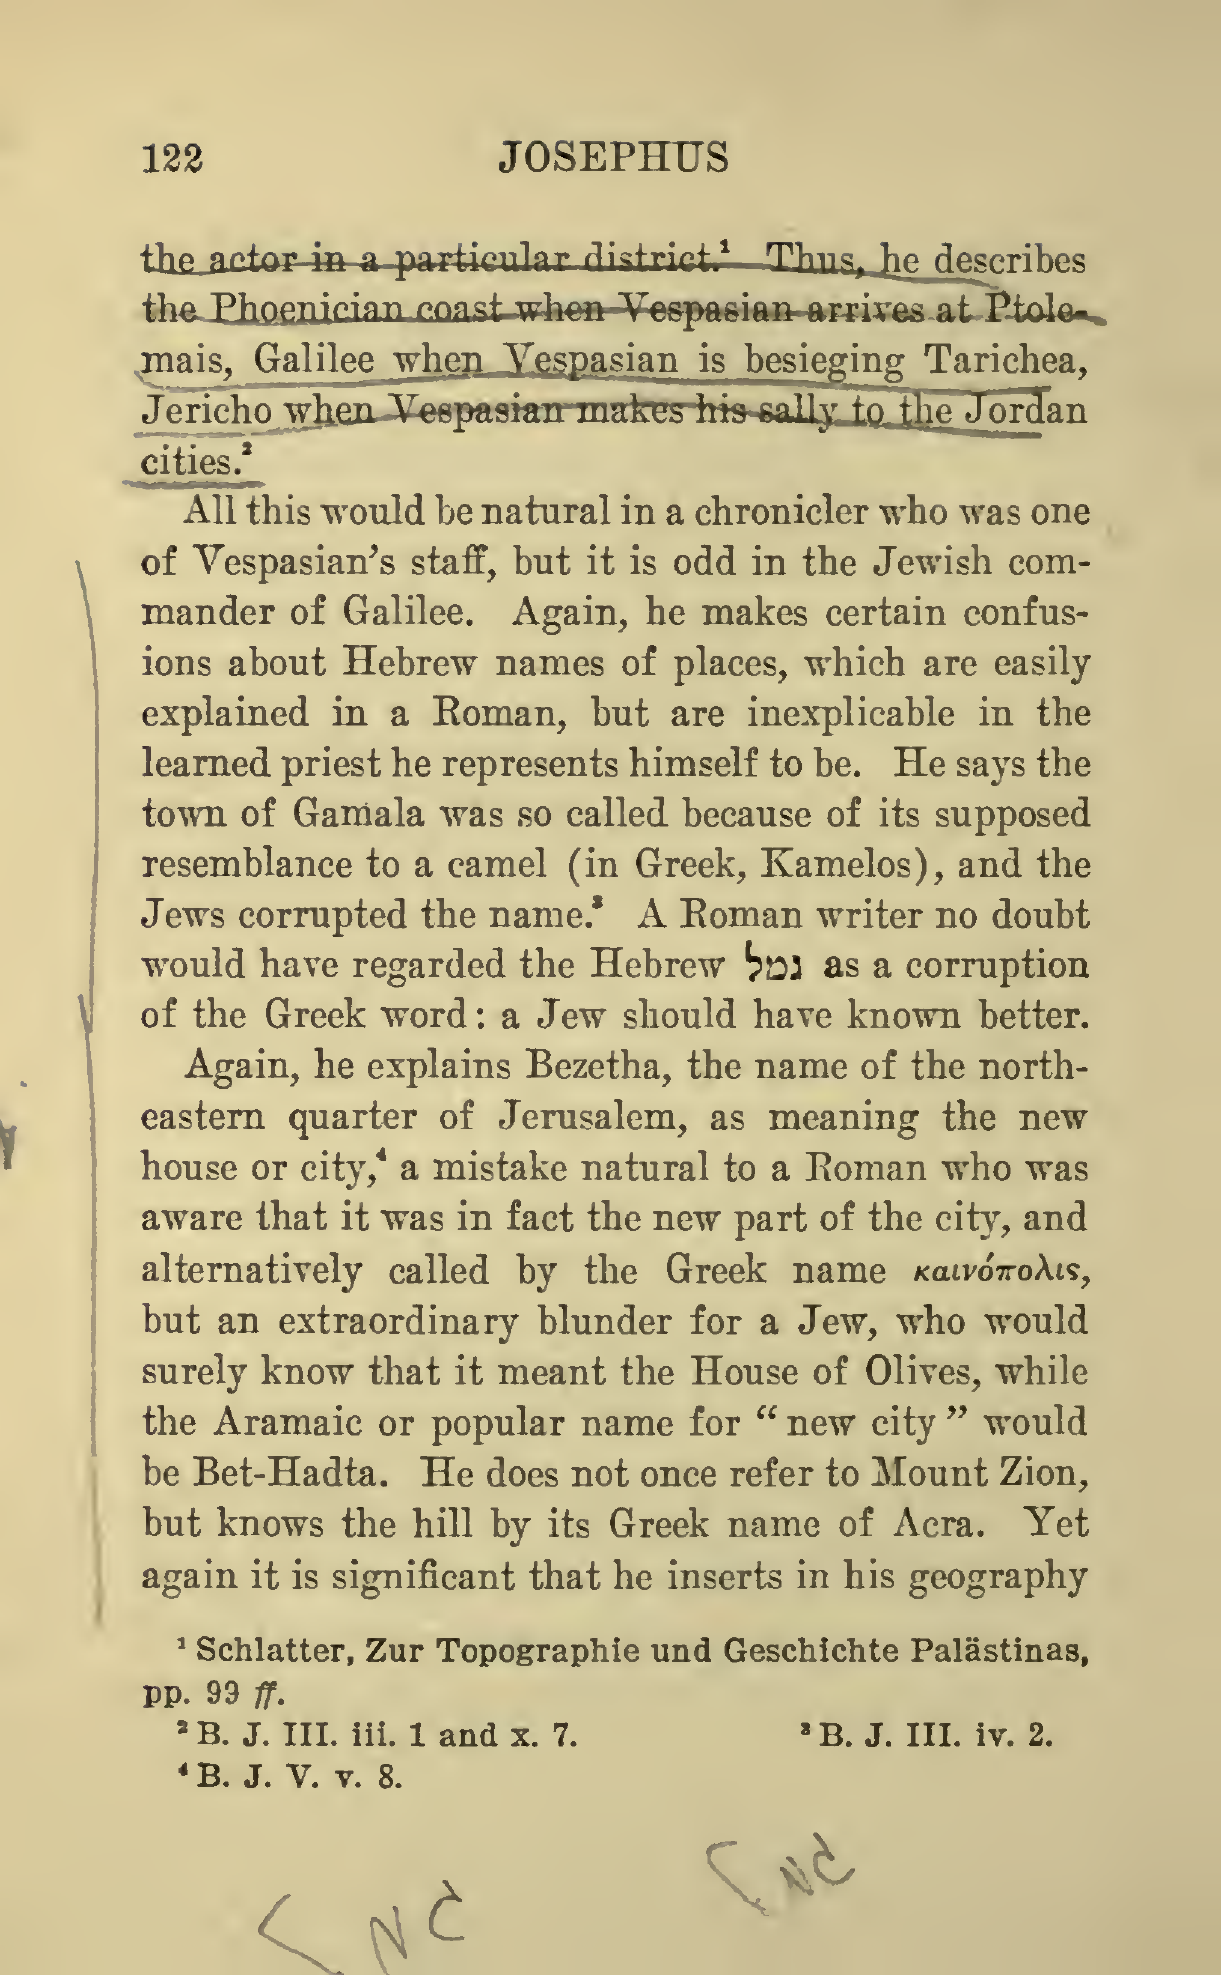 122 JOSEPHUS
the actor in a particular district.¹ Thus, he describes
the Phoenician coast when Vespasian arrives at Ptole-
mais, Galilee when Vespasian is besieging Tarichea,
Jericho when Vespasian makes his sally to the Jordan
cities.²
All this would be natural in a chronicler who was one
of Vespasian's staff, but it is odd in the Jewish com-
mander of Galilee. Again, he makes certain confus-
ions about Hebrew names of places, which are easily
explained in a Roman, but are inexplicable in the
learned priest he represents himself to be. He says the
town of Gamala was so called because of its supposed
resemblance to a camel (in Greek, Kamelos), and the
Jews corrupted the name.³ A Roman writer no doubt
would have regarded the Hebrew גמל as a corruption
of the Greek word: a Jew should have known better.
Again, he explains Bezetha, the name of the north-
eastern quarter of Jerusalem, as meaning the new
house or city,⁴ a mistake natural to a Roman who was
aware that it was in fact the new part of the city, and
alternatively called by the Greek name καινόπολις,
but an extraordinary blunder for a Jew, who would
surely know that it meant the House of Olives, while
the Aramaic or popular name for "new city" would
be Bet-Hadta. He does not once refer to Mount Zion,
but knows the hill by its Greek name of Acra. Yet
again it is significant that he inserts in his geography
¹ Schlatter, Zur Topographie und Geschichte Palästinas,
pp. 99 ff.
² B. J. III. iii. 1 and x. 7. ³ B. J. III. iv. 2.
⁴ B. J. V. v. 8.